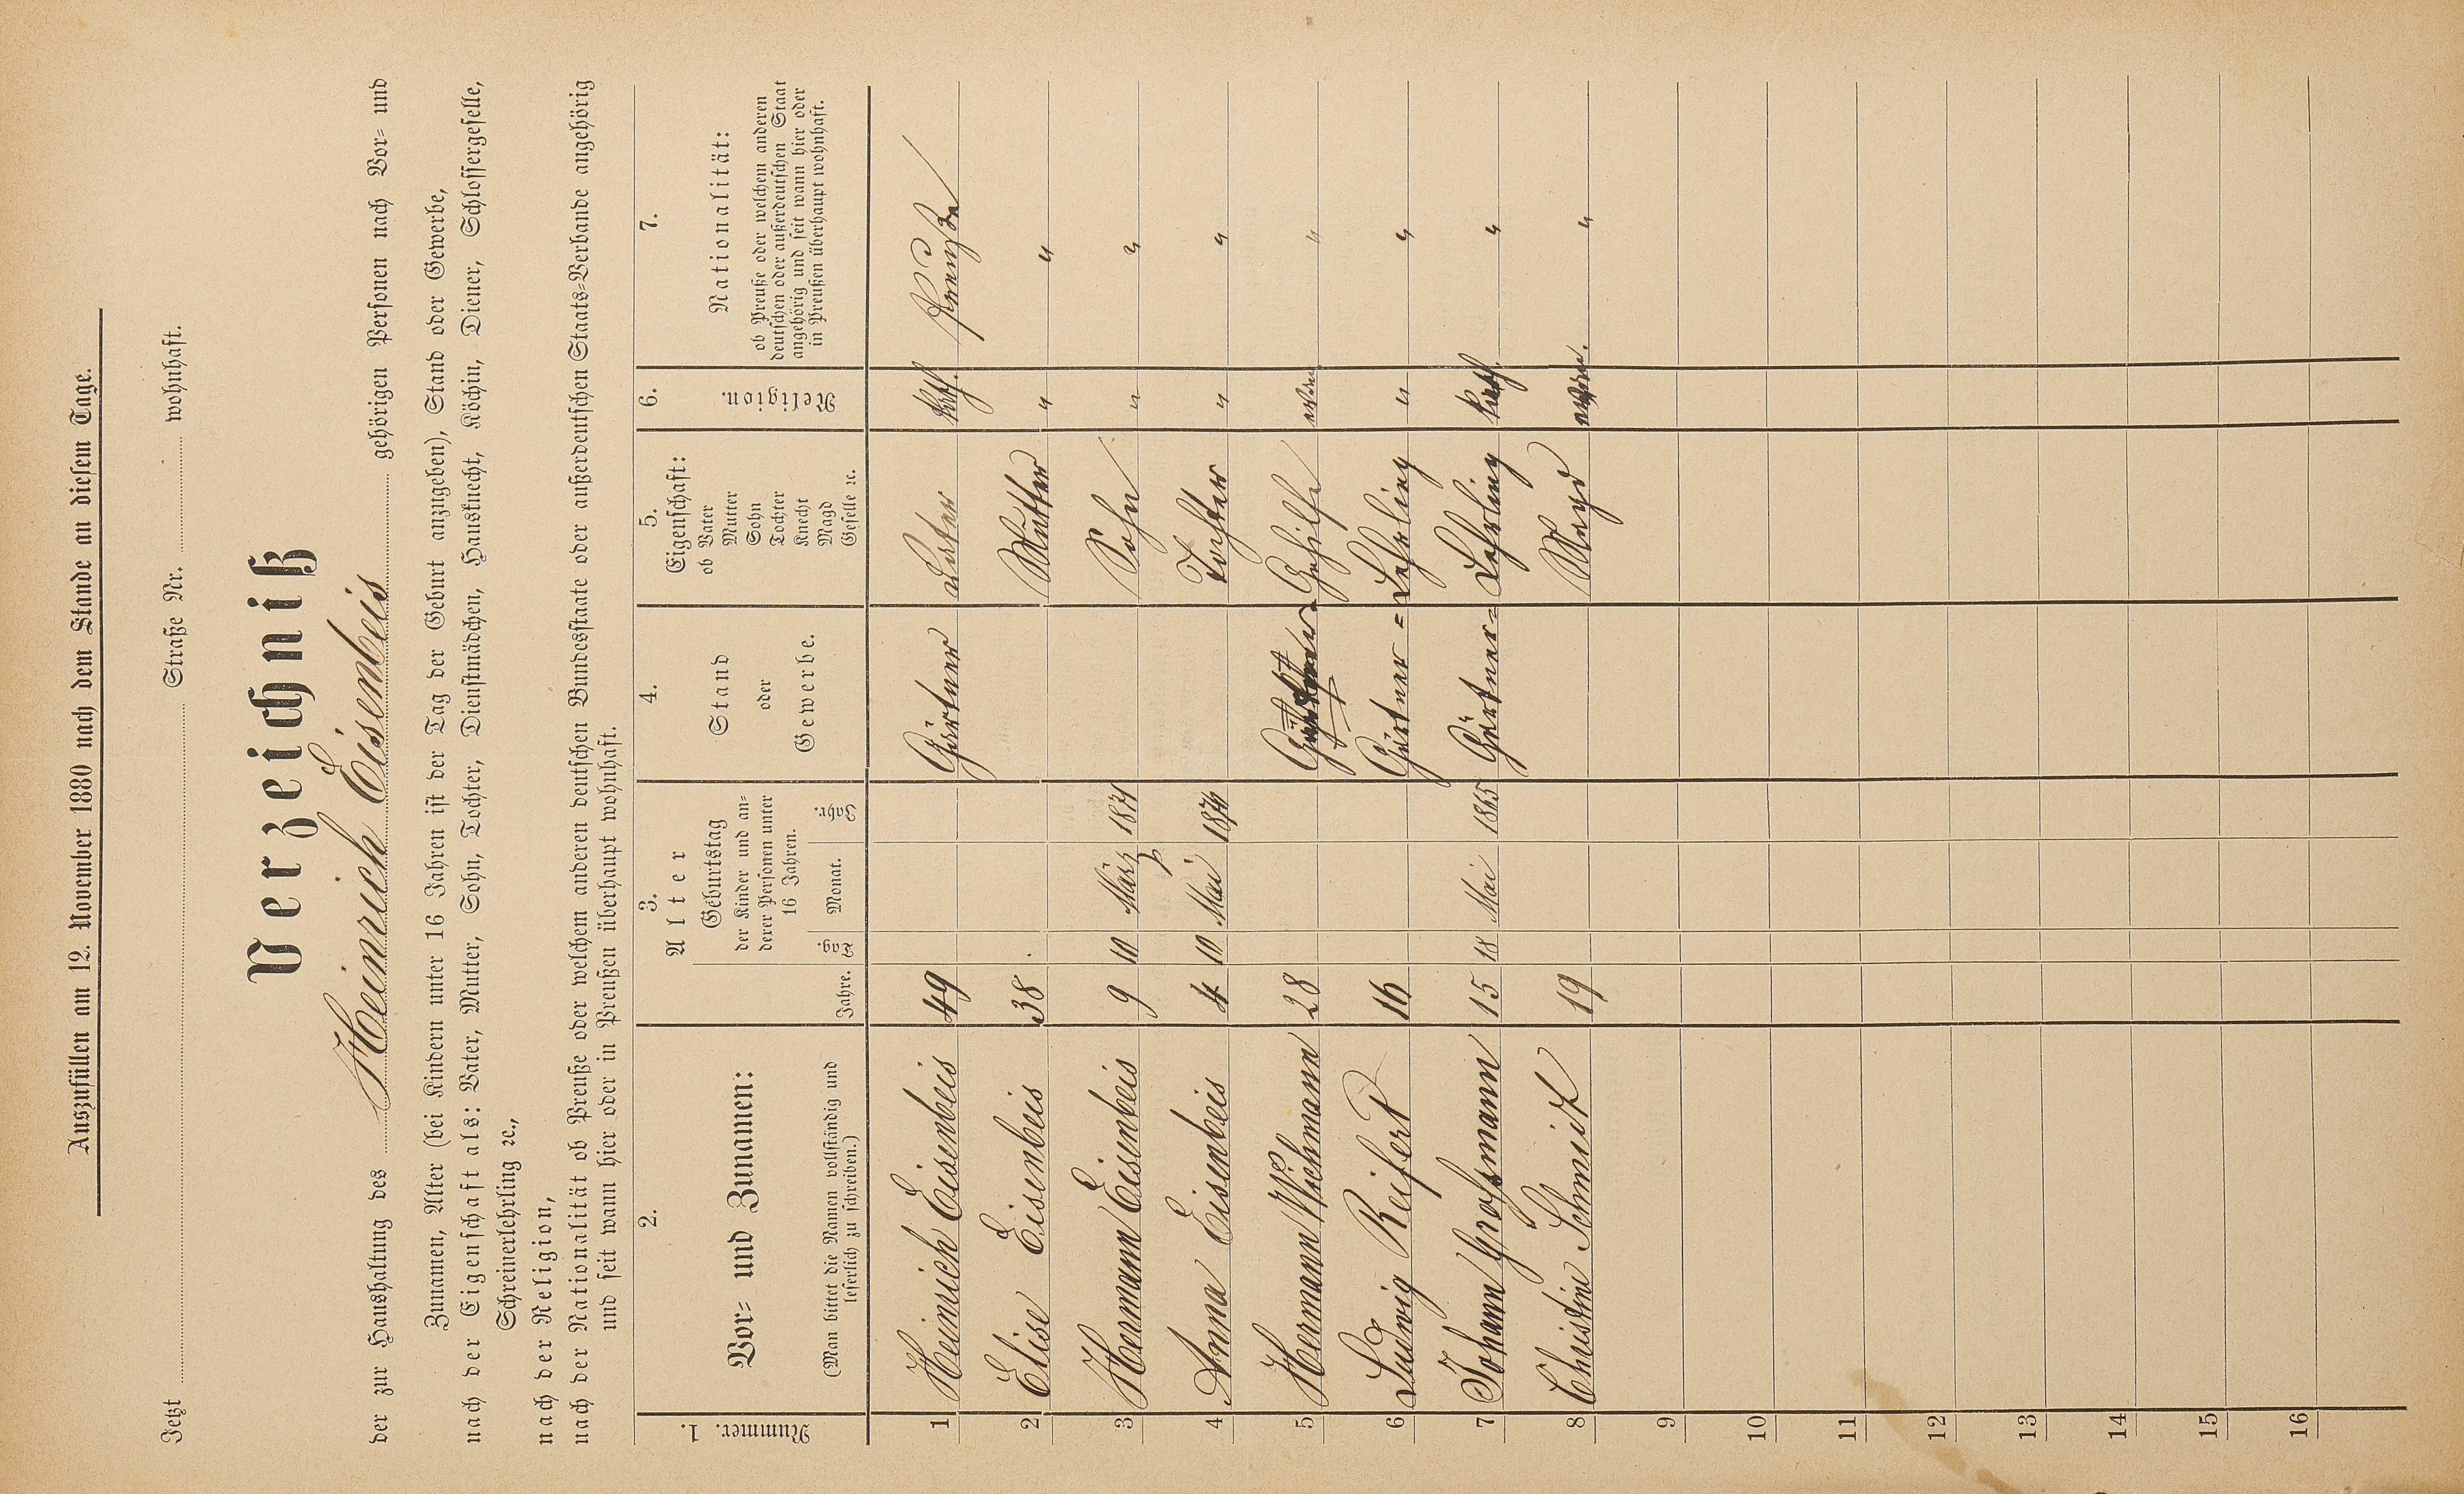 Auszufüllen am 12. November 1880 nach dem Stande an diesem Tage.
Jetzt Straße Nr. wohnhaft.
Verzeichniß
der zur Haushaltung des Heinrich Eisenbeis gehörigen Personen nach Vor- und
Zunamen, Alter (bei Kindern unter 16 Jahren ist der Tag der Geburt anzugeben), Stand oder Gewerbe,
nach der Eigenschaft als: Vater, Mutter, Sohn, Tochter, Dienstmädchen, Hausknecht, Köchin, Diener, Schlossergeselle,
Schreinerlehrling ꝛc.,
nach der Religion,
nach der Nationalität ob Preuße oder welchem anderen deutschen Bundesstaate oder außerdeutschen Staats-Verbande angehörig
und seit wann hier oder in Preußen überhaupt wohnhaft.
1.
Nummer.
2.
Vor- und Zunamen:
(Man bittet die Namen vollständig und
leserlich zu schreiben.)
3.
Alter
Jahre.
Geburtstag
der Kinder und an-
derer Personen unter
16 Jahren.
Tag. Monat. Jahr.
4.
Stand
oder
Gewerbe.
5.
Eigenschaft:
ob Vater
Mutter
Sohn
Tochter
Knecht
Magd
Geselle ꝛc.
6.
Religion.
7.
Nationalität:
ob Preuße oder welchem anderen
deutschen oder außerdeutschen Staat
angehörig und seit wann hier oder
in Preußen überhaupt wohnhaft.
1 Heinrich Eisenbeis 49 Gärtner Vater kath. Preuße
2 Elise Eisenbeis 38 Mutter " "
3 Hermann Eisenbeis 9 10 März 1871 Sohn " "
4 Anna Eisenbeis 4 10 Mai 1876 Tochter " "
5 Hermann Wichmann 28 Gehilfe evan "
6 Ludwig Reifert 16 Gärtner = Lehrling " "
7 Johann Großmann 15 18 Mai 1865 Gärtner = Lehrling kath. "
8 Christine Schmidt 19 Magd evan. "
9
10
11
12
13
14
15
16